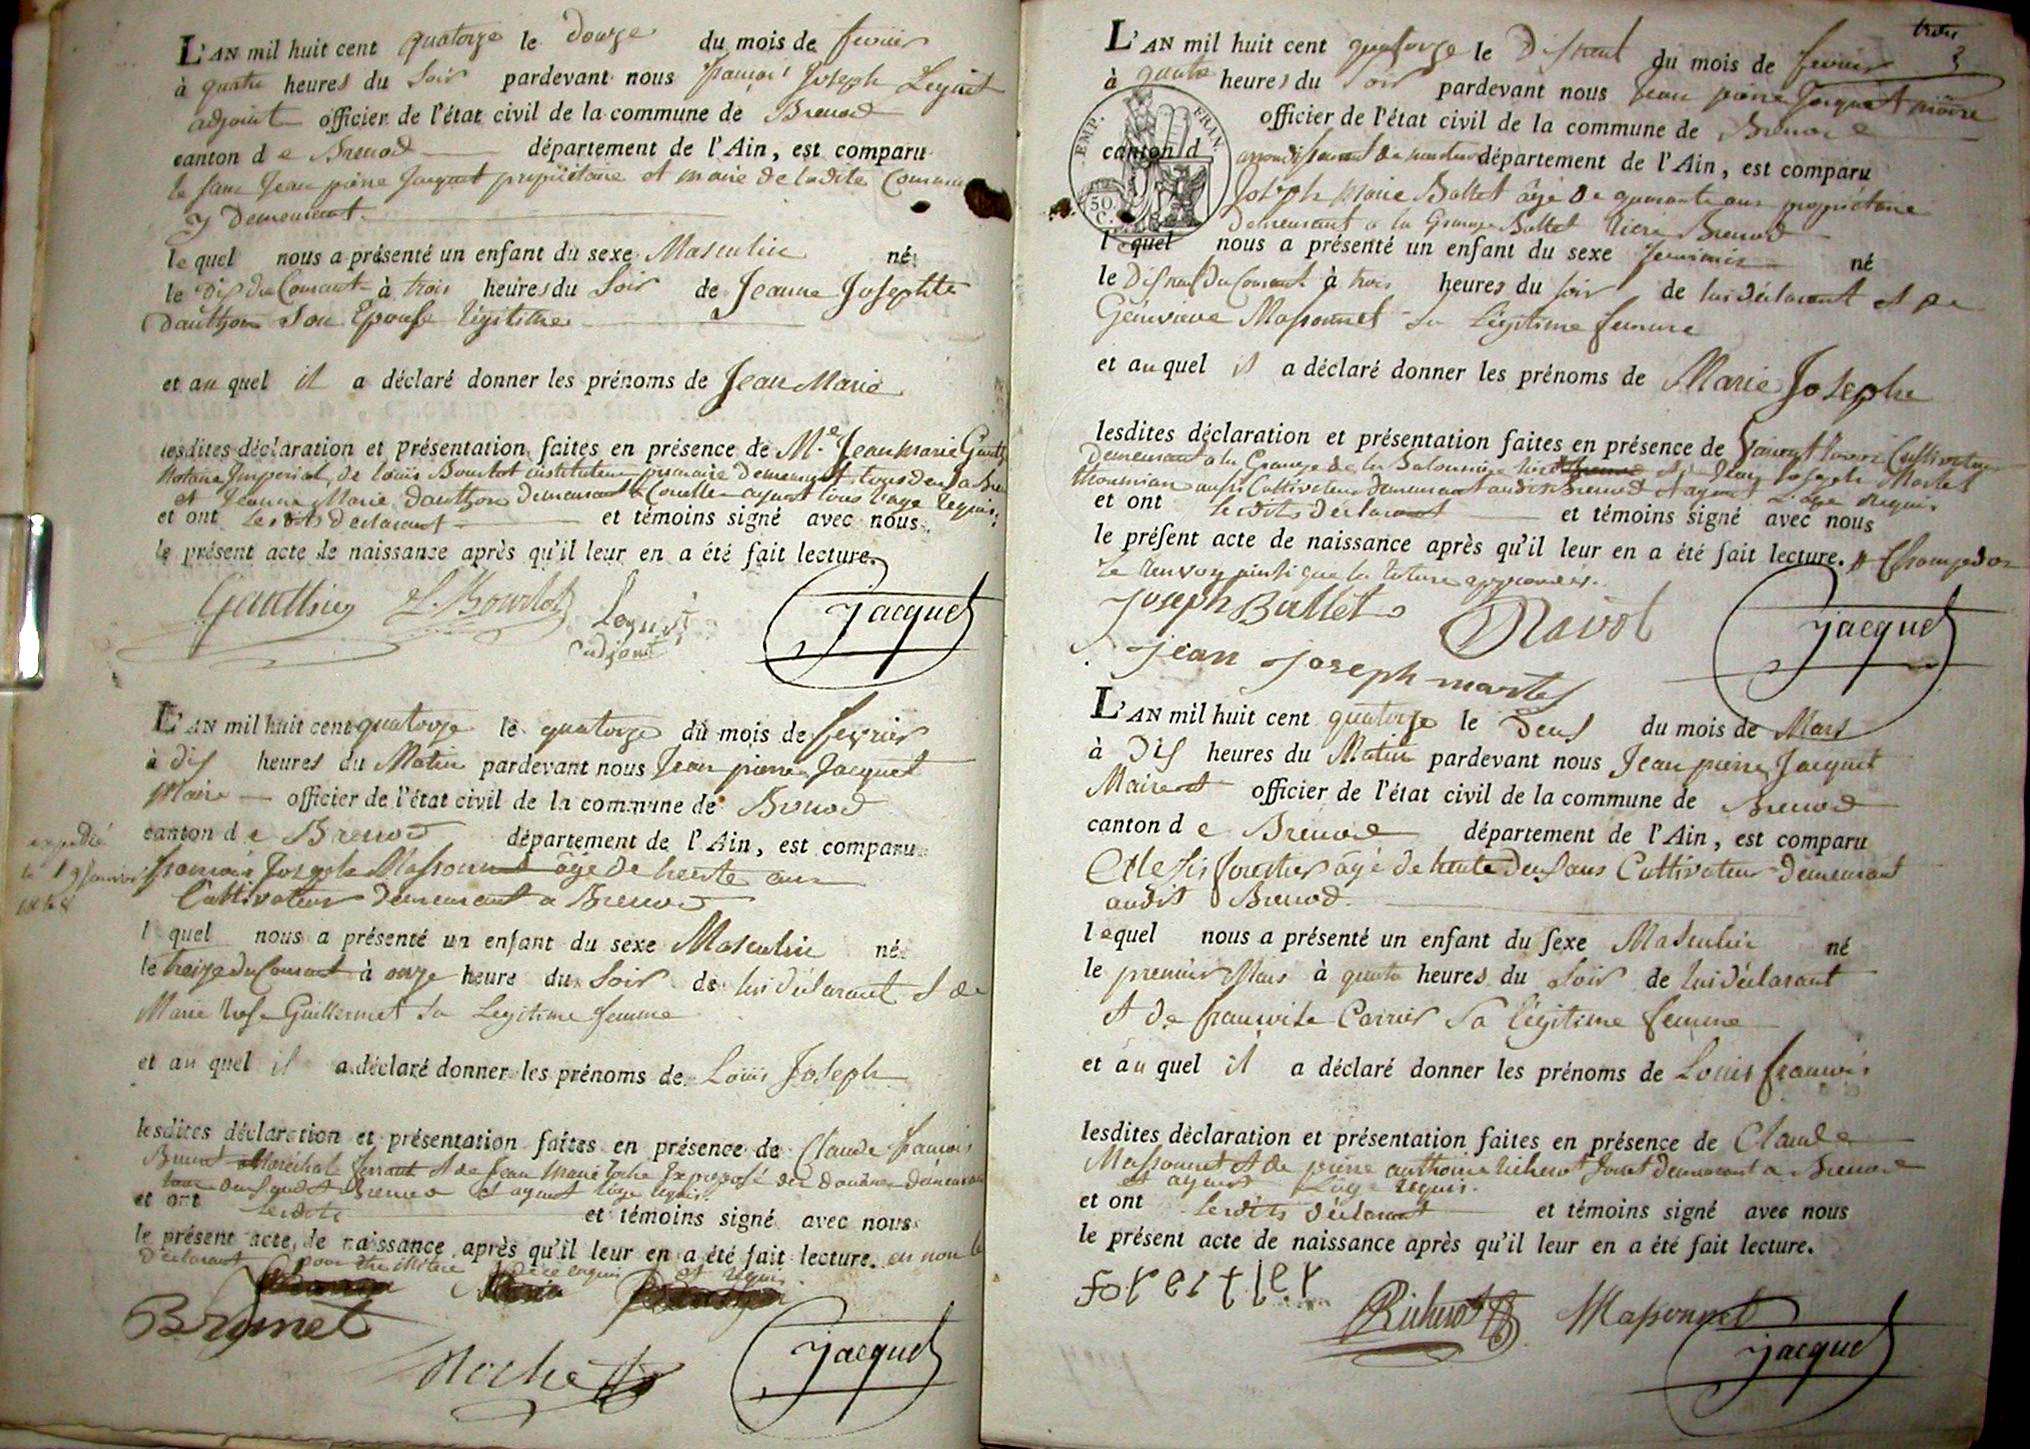 L'AN mil huit cent quatorze le douze du mois de fevrier
à quatre heures du soir pardevant nous françois Joseph Leynet
adjoint officier de l'état civil de la commune de Brenod
canton de Brenod département de l'Ain, est comparu
le sieur Jean pierre Jacquet propriétaire et maire de ladite Commune
y Demeurant
lequel nous a présenté un enfant du sexe Masculin né
le dix du Courant à trois heures du soir de Jeanne Josephte
Dauthon son Epouse légitime
et au quel il a déclaré donner les prénoms de Jean Marie
lesdites déclaration et présentation faites en présence de Me. Jean marie
Notaire Imperial, de louis Bourbot instituteur primaire demeurant tous deux a
et Jeanne Marie dauthon demeurant a ayant tous l'age requis
et ont lesdits déclarant et témoins signé avec nous
le présent acte de naissance après qu'il leur en a été fait lecture.
Gauthier L. Bourbot Leynet Jacquet
adjoint
L'AN mil huit cent quatorze le quatorze du mois de fevrier
à dix heures du Matin pardevant nous Jean pierre Jacquet
Maire officier de l'état civil de la commune de Brenod
canton de Brenod département de l'Ain, est comparu
françois Joseph Massonnet âgé de trente ans
Cultivateur demeurant a Brenod
l quel nous a présenté un enfant du sexe Masculin né
le treize du Courant à onze heure du soir de lui déclarant et de
Marie Guillermet sa Legitime femme
et au quel il a déclaré donner les prénoms de Louis Joseph
lesdites déclaration et présentation faites en présence de Claude françois
Brunet Maréchal ferrant et de Jean Marie des douanes demeurant
Brenod et ayant l'age requis
et ont lesdits et témoins signé avec nous
le présent acte de naissance après qu'il leur en a été fait lecture. et non le
Déclarant pour être illitéré de ce enquis et requis
Brunet
Jacquet
3
L'AN mil huit cent quatorze le Dix neuf du mois de fevrier
à quatre heures du soir pardevant nous Jean pierre Jacquet maire
officier de l'état civil de la commune de Brenod
canton d arrondissement de nantua département de l'Ain, est comparu
EMP. FRAN.
50 C.
Joseph Marie Ballet âgé de quarante ans propriétaire
demeurant a la Grange Ballet Brenod
lequel nous a présenté un enfant du sexe feminin né
le Dix neuf du Courant à trois heures du soir de lui déclarant et de
Géneviève Massonnet sa légitime femme
et au quel il a déclaré donner les prénoms de Marie Josephe
lesdites déclaration et présentation faites en présence de Cultivateur
Demeurant a la Grange de la et de Jean Joseph Martel
aussi Cultivateur demeurant audit Brenod et ayant l'age requis
et ont lesdits déclarant et témoins signé avec nous
le présent acte de naissance après qu'il leur en a été fait lecture.
le renvoy ainsi que la rature approuvés.
Joseph Ballet Ravot Jacquet
jean joseph martel
L'AN mil huit cent quatorze le Deux du mois de Mars
à Dix heures du Matin pardevant nous Jean pierre Jacquet
Maire et officier de l'état civil de la commune de Brenod
canton de Brenod département de l'Ain, est comparu
Alexis forestier âgé de trente deux ans Cultivateur demeurant
audit Brenod.
lequel nous a présenté un enfant du sexe Masculin né
le premier Mars à quatre heures du soir de lui déclarant
et de françoise Carrier sa légitime femme
et au quel il a déclaré donner les prénoms de Louis françois
lesdites déclaration et présentation faites en présence de Claude
Massonnet et de pierre anthoine Richerot demeurant a Brenod
et ayant l'age requis.
et ont lesdits déclarant et témoins signé avec nous
le présent acte de naissance après qu'il leur en a été fait lecture.
forestier Richerot Massonnet
Jacquet